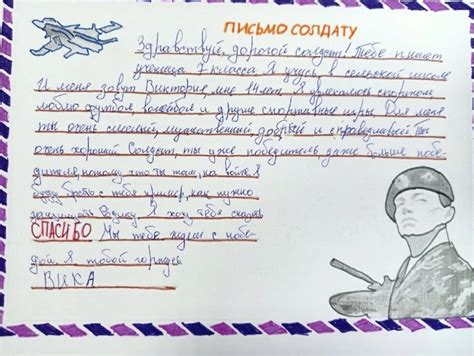 ПИСЬМО СОЛДАТУ
Здравствуй, дорогой солдат! Тебе пишет
ученица 7 класса. Я учусь в сельской школе
И меня зовут Виктория, мне 14 лет. Я увлекаюсь спортом,
люблю футбол, волейбол и другие спортивные игры. Для меня
ты очень смелый, мужественный, добрый и справедливый. Ты
очень хороший Солдат, ты уже победитель, даже больше побе-
дителя, потому что ты там, на войне. Я
буду брать с тебя пример, как нужно
защищать Родину. Я хочу тебе сказать
СПАСИБО Мы тебя ждем с побе-
дой. Я тобой горжусь
ВИКА